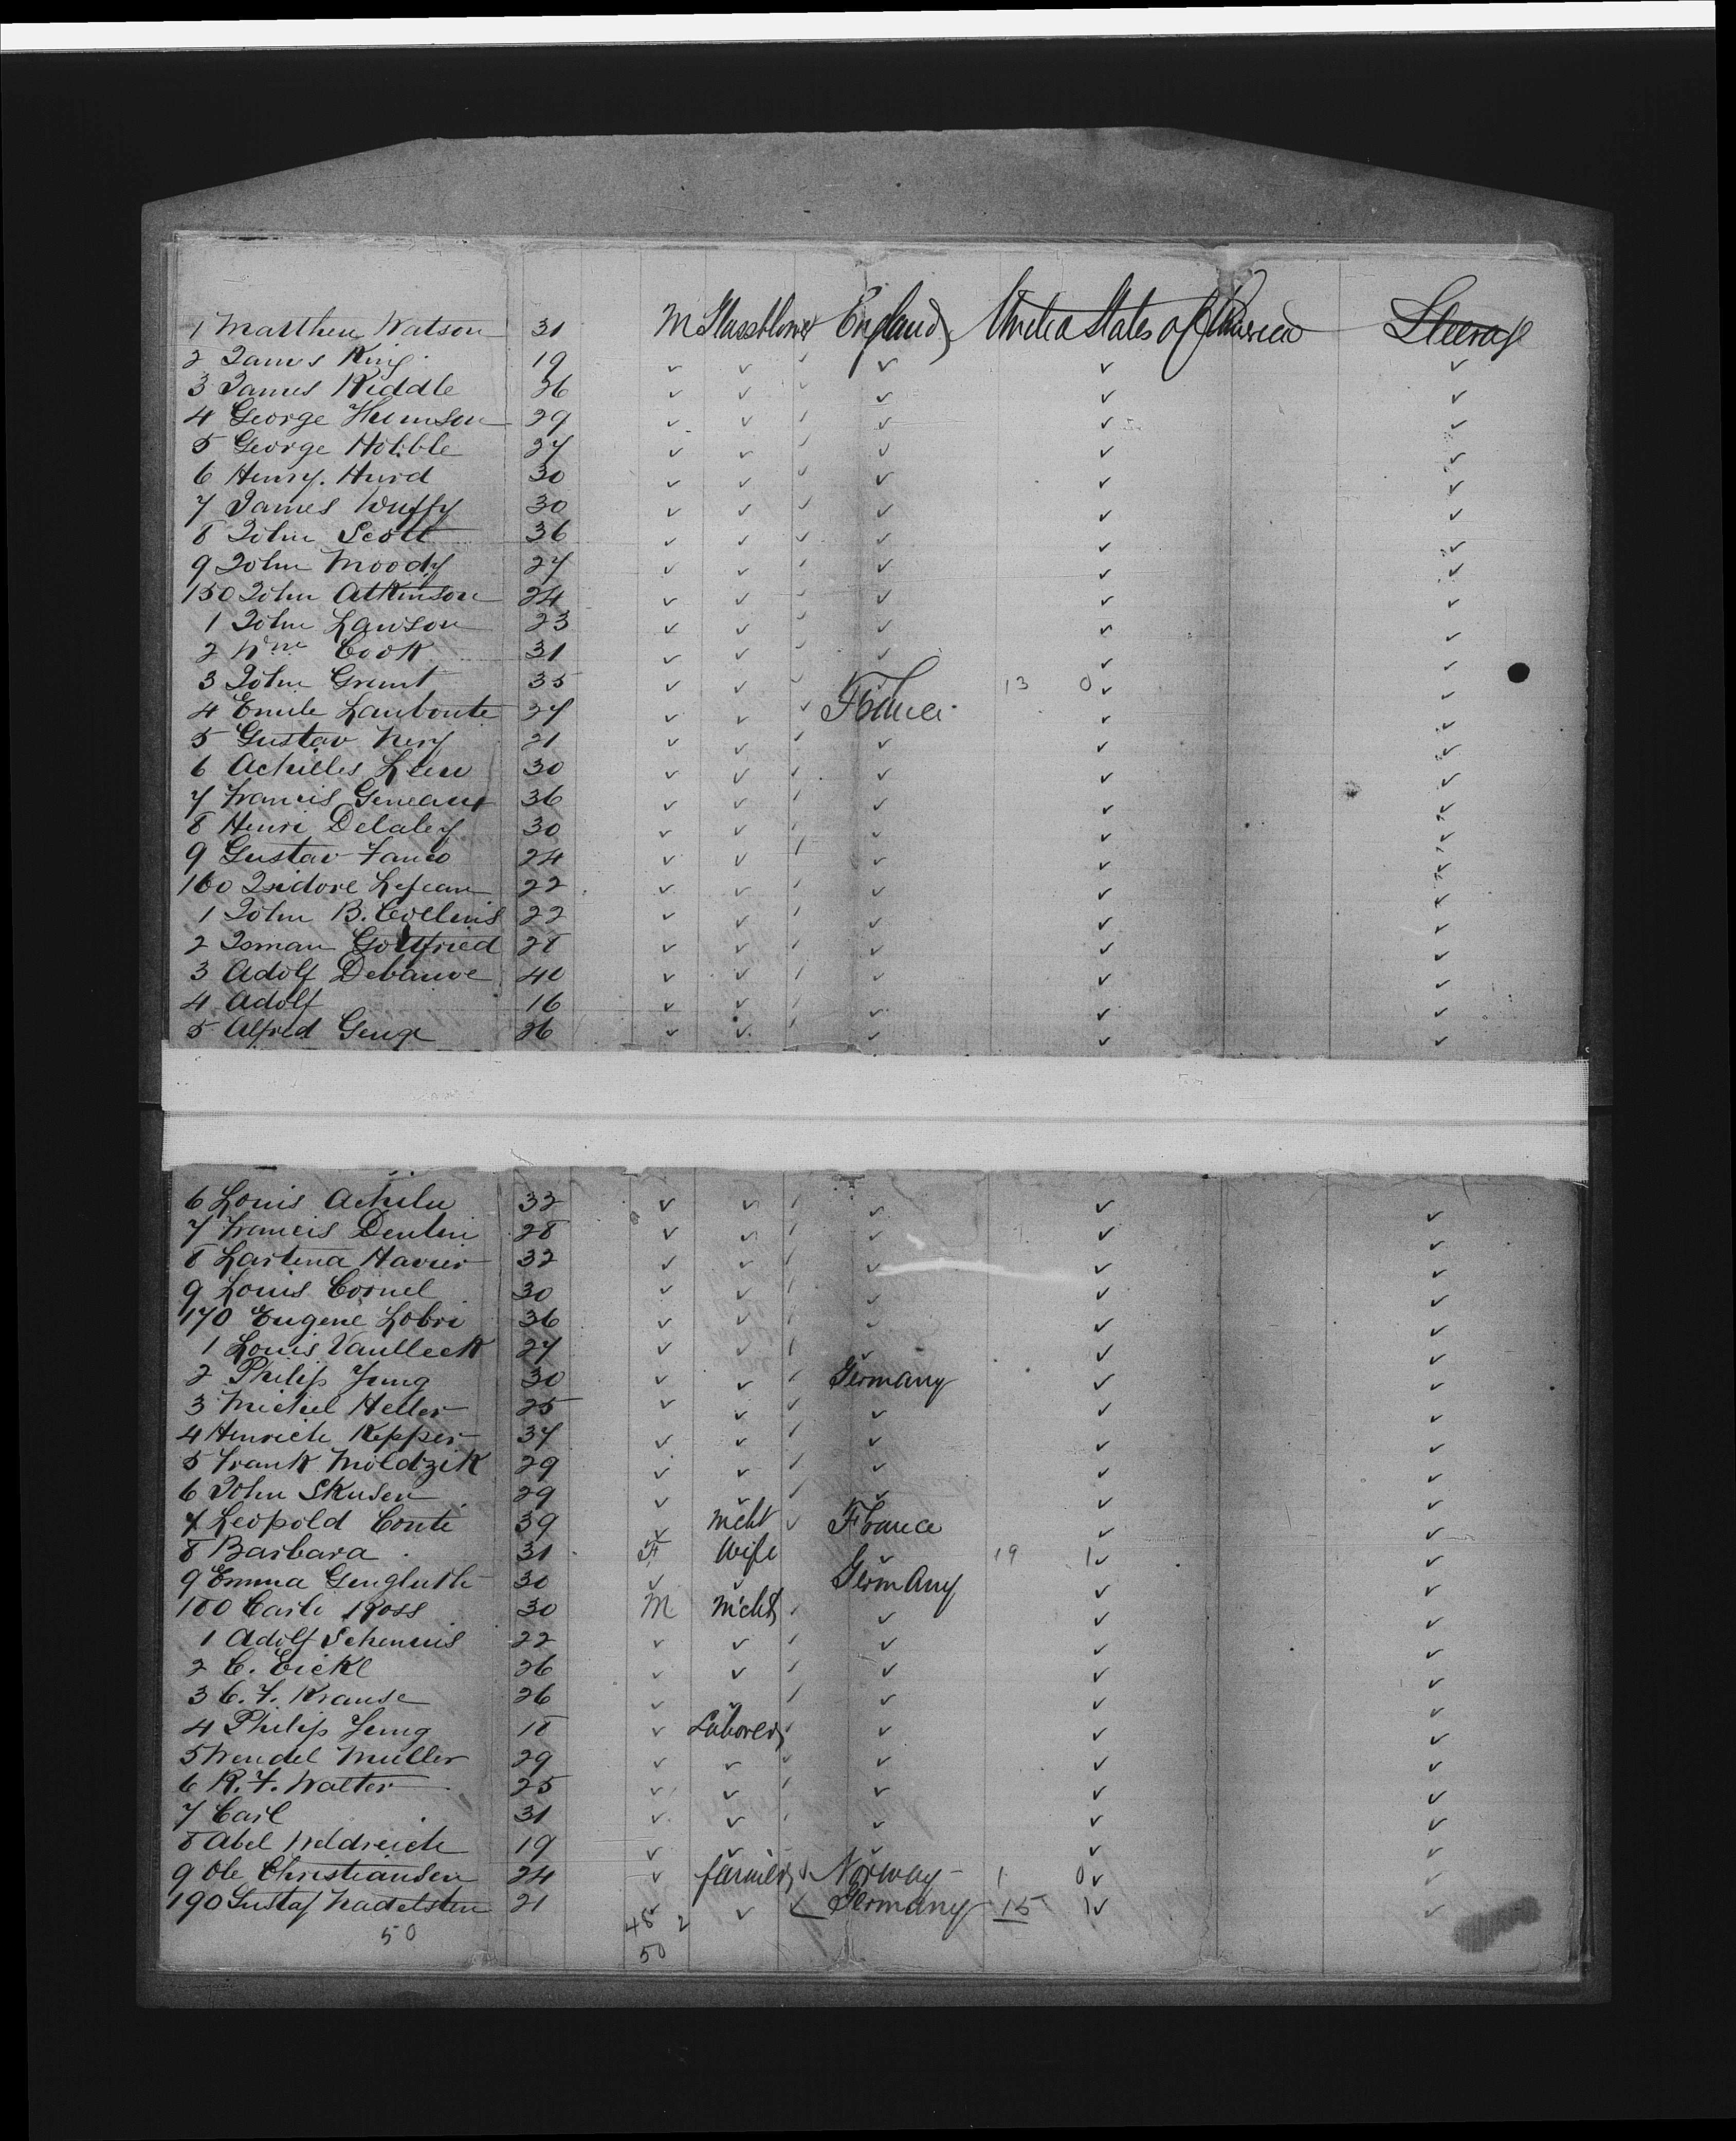 1 Matthew Watson 31 M Glassblower England United States of America Steerage
2 James King 19 ✓ ✓ ✓ ✓ ✓ ✓
3 James Riddle 26 ✓ ✓ ✓ ✓ ✓ ✓
4 George 29 ✓ ✓ ✓ ✓ ✓ ✓
5 George Hobble 27 ✓ ✓ ✓ ✓ ✓ ✓
6 Henry. Hurd 30 ✓ ✓ ✓ ✓ ✓ ✓
7 James Duffy 30 ✓ ✓ ✓ ✓ ✓ ✓
8 John Scott 36 ✓ ✓ ✓ ✓ ✓ ✓
9 John Moody 27 ✓ ✓ ✓ ✓ ✓ ✓
150 John Atkinson 24 ✓ ✓ ✓ ✓ ✓ ✓
1 John Lawson 23 ✓ ✓ ✓ ✓ ✓ ✓
2 Wm Cook 31 ✓ ✓ ✓ ✓ ✓ ✓
3 John Grant 35 ✓ ✓ ✓ 13 0 ✓ ✓
4 Emile Lambonte 27 ✓ ✓ ✓ France ✓ ✓
5 Gustav Nery 21 ✓ ✓ ✓ ✓ ✓ ✓
6 Achilles 30 ✓ ✓ ✓ ✓ ✓ ✓
7 Francis Geneaux 36 ✓ ✓ ✓ ✓ ✓ ✓
8 Henri Delaley 30 ✓ ✓ ✓ ✓ ✓ ✓
9 Gustav Fanco 24 ✓ ✓ ✓ ✓ ✓ ✓
160 Isidore Lejean 22 ✓ ✓ ✓ ✓ ✓ ✓
1 John B. Collins 22 ✓ ✓ ✓ ✓ ✓ ✓
2 Isman Gottfried 28 ✓ ✓ ✓ ✓ ✓ ✓
3 Adolf Debauve 40 ✓ ✓ ✓ ✓ ✓ ✓
4 Adolf 16 ✓ ✓ ✓ ✓ ✓ ✓
5 Alfred Genge 26 ✓ ✓ ✓ ✓ ✓ ✓
6 Louis Achilu 32 ✓ ✓ ✓ ✓ ✓ ✓
7 Francis Dentin 28 ✓ ✓ ✓ ✓ ✓ ✓
8 Lartena Havier 32 ✓ ✓ ✓ ✓ ✓ ✓
9 Louis Cornel 30 ✓ ✓ ✓ ✓ ✓ ✓
170 Eugene Lobri 36 ✓ ✓ ✓ ✓ ✓ ✓
1 Louis Vaulleck 27 ✓ ✓ ✓ ✓ ✓ ✓
2 Philip Jung 30 ✓ ✓ ✓ Germany ✓ ✓
3 Michel Heller 25 ✓ ✓ ✓ ✓ ✓ ✓
4 Henrich Kepper 37 ✓ ✓ ✓ ✓ ✓ ✓
5 Frank Moldzik 29 ✓ ✓ ✓ ✓ ✓ ✓
6 John Skusen 29 ✓ ✓ ✓ ✓ ✓ ✓
7 Leopold Conte 39 ✓ Mcht ✓ France ✓ ✓
8 Barbara 31 F Wife ✓ 19 1 ✓ ✓
9 Emma Gengluth 30 ✓ ✓ Germany ✓ ✓
180 Carli Ross 30 M Mcht ✓ ✓ ✓ ✓
1 Adolf Schennis 22 ✓ ✓ ✓ ✓ ✓ ✓
2 C. Eickl 26 ✓ ✓ ✓ ✓ ✓ ✓
3 C. F. Krause 26 ✓ ✓ ✓ ✓ ✓ ✓
4 Philip Jung 18 ✓ Laborer ✓ ✓ ✓ ✓
5 Wendel Muller 29 ✓ ✓ ✓ ✓ ✓ ✓
6 R. F. Walter 25 ✓ ✓ ✓ ✓ ✓ ✓
7 Carl 31 ✓ ✓ ✓ ✓ ✓ ✓
8 Abel Weldreich 19 ✓ ✓ ✓
9 Ole Christiansen 24 ✓ farmer ✓ Norway 1 0 ✓ ✓
190 Gustaf Nadelsten 21 ✓ ✓ ✓ Germany 15 1 ✓ ✓
48 2
50 50